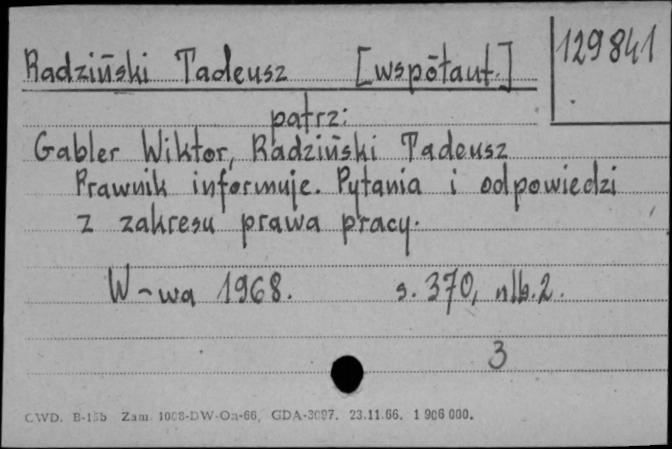 Radziński Tadeusz [współaut.] 129841
patrz:
Gabler Wiktor, Radziński Tadeusz
Prawnik informuje. Pytania i odpowiedzi
z zakresu prawa pracy.
W-wa 1968. s. 370, nlb. 2.
3
CWD. B-15b Zam. 1008-DW-Oa-66, GDA-3097. 23.11.66. 1 906 000.